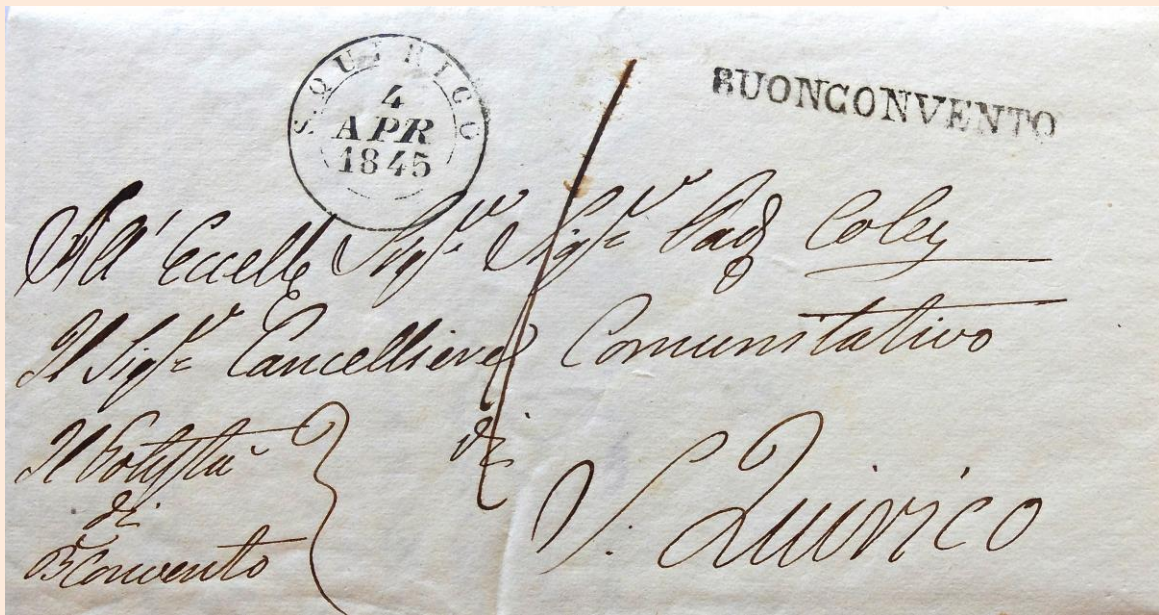 S. QUIRICO
4
APR
1845
BUONCONVENTO
All' Eccell Sigr Sigr Pad Coll
Il Sigr Cancelliere Comunitativo
di
S. Quirico
Il Potestà
di
BConvento